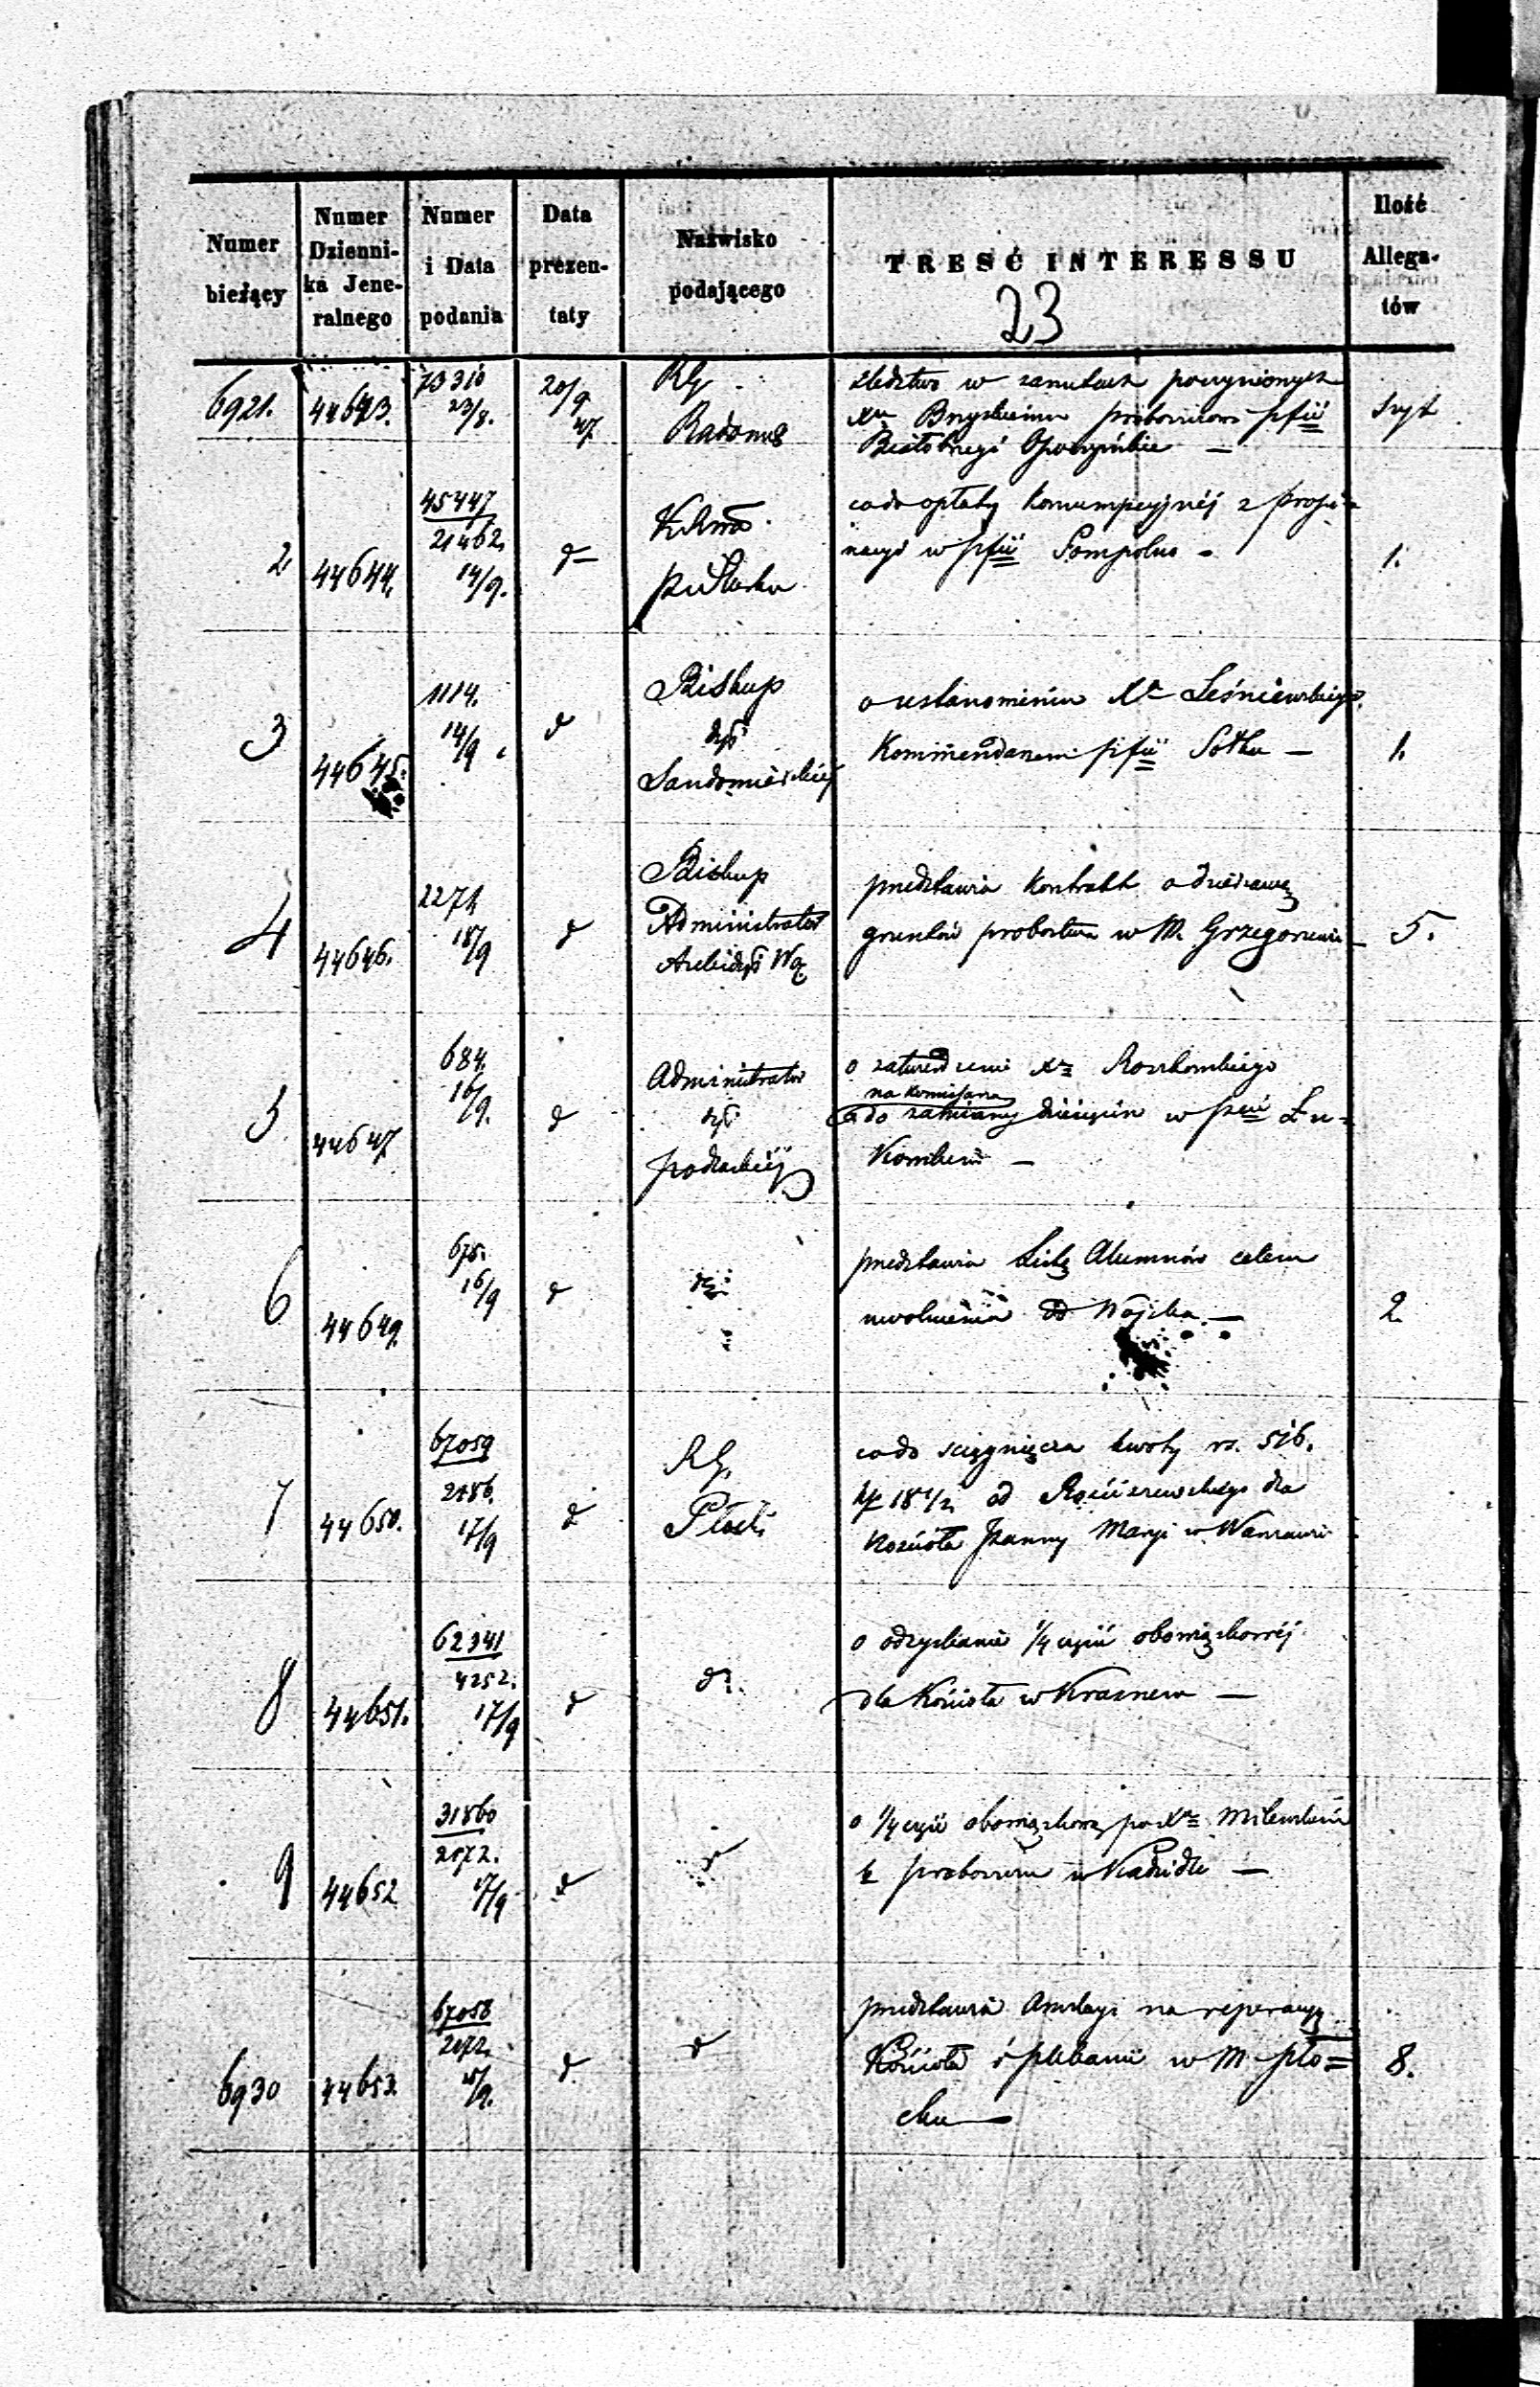 Numer bieżący
Numer Dzienni-ka Jene-ralnego
Numer i Data podania
Data prezen-taty
Nazwisko podającego
TRESĆ INTERESSU
Ilość Allega-tów
23
6921. 44643. 73310 23/8. 20/9 47 RG Radoms
śledztwo w zarzutach poczynionych
Xu proboszczowi pfii
Białobrzegi Opoczyńskie —
2 44644. 45447 21462. 14/9. d
co do opłaty konsumpcyjnéj z propi-
nacyi w pfii Sompolno - 1.
3 44645. 1114. 14/9 d Biskup dyi Sandomierskiéj
o ustanowieniu Xa Leśniewskiego
Kommendarzem pfii Sołku — 1.
4 44646. 2271. 18/9 d Biskup Administrator Archidyi
przedstawia kontrakt o dzierżawę
gruntów probostwa w M. Grzegorzewie — 5.
5 44647 684. 16/9. d Administrator dyi podlaskiéj
o zatwierdzenie Xa Roszkowskiego
na komisarza
do zamiany dziesięcin w pcie Łu-
kowskim —
6 44649. 675. 16/9 d d
przedstawia Listę Alumnów celem
uwolnienia od Wojska — 2
7 44650. 67059 2186. 17/9 d RG. Płocki
co do ściągnięcia kwoty rs. 516.
kp 18 1/2 od dla
kościoła Panny Maryi w Warszawie
8 44651. 62341 4252. 17/9 d d
o odzyskanie 1/4 części obowiązkowéj
dla Kościoła w Krasnem —
9 44652 31860 2172. 17/9 d d
o 1/4 części obowiązkową po Xu Milewskim
b proboszczu w Kadzidle —
6930 44653. 67058 2172. 15/9. d d
przedstawia Anszlagi na reperacyę
Kościoła i plebanii w M. Pło=
cku — 8.